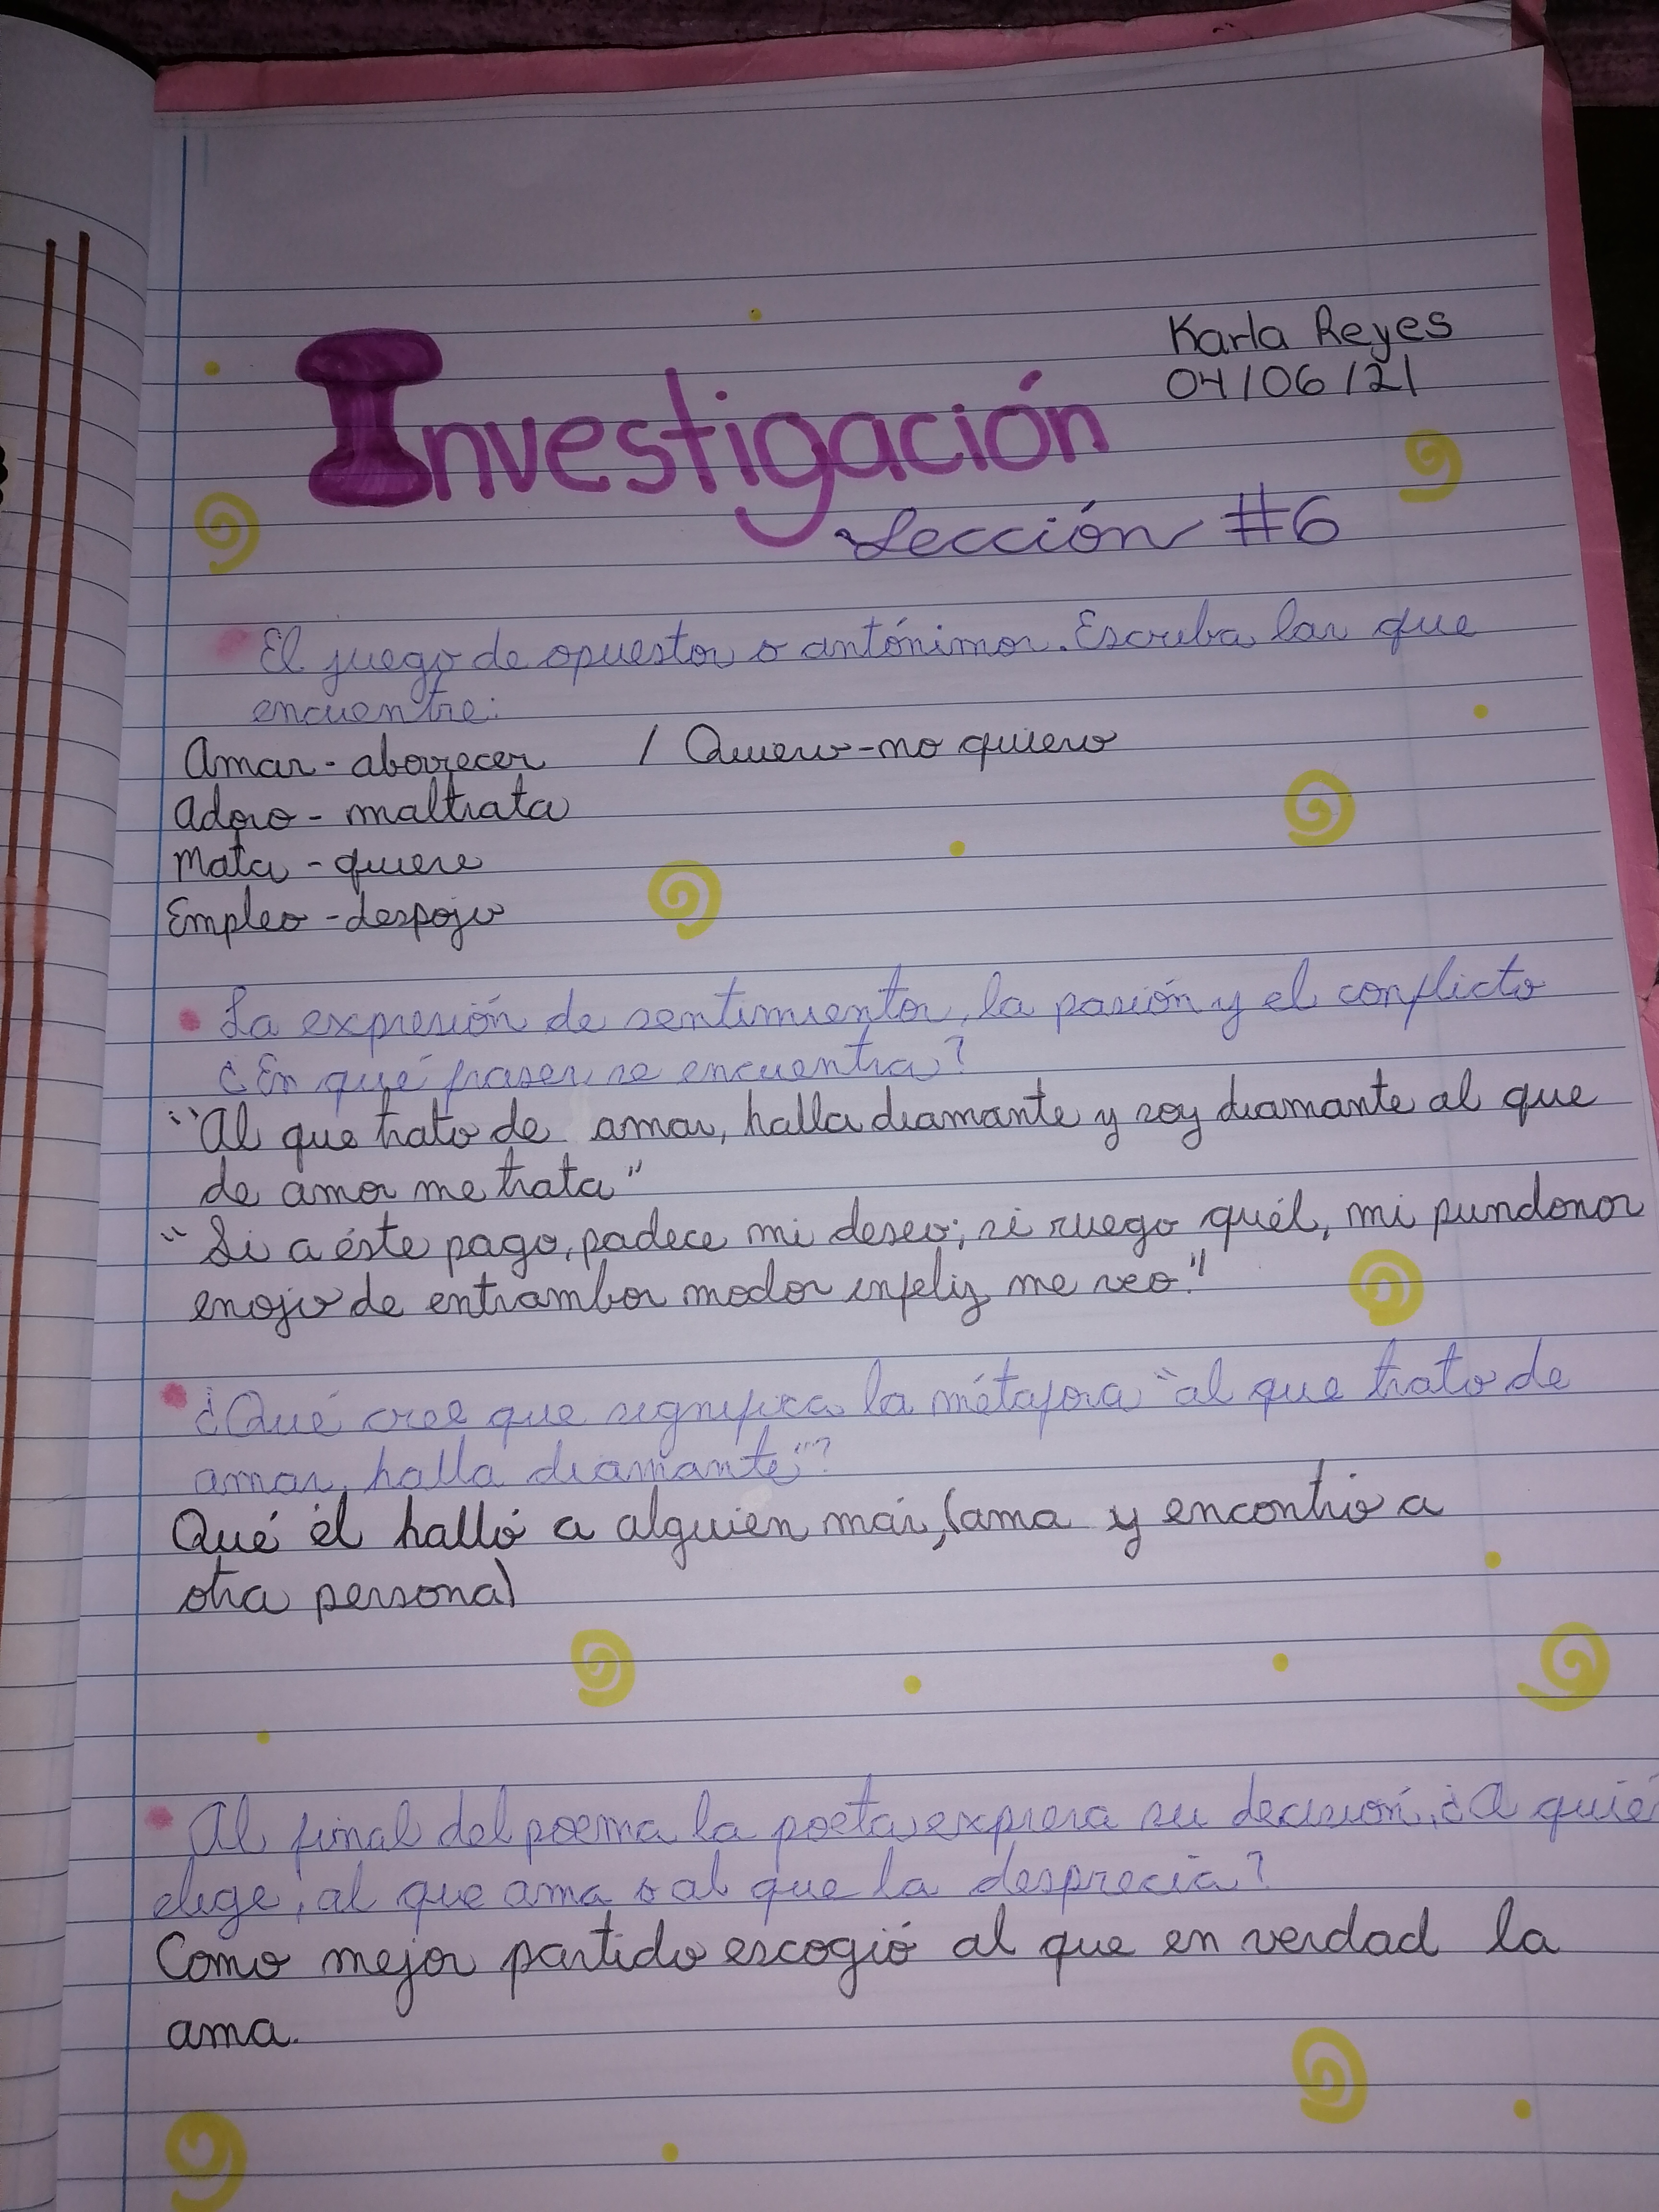 Karla Reyes
04/06/21
Investigación
Lección #6
El juego de opuestos o antónimos. Escriba las que
encuentre:
Amar - aborrecer / Quiero - no quiero
Adoro - maltrata
Mata - quiere
Empleo - despojo
La expresión de sentimientos, la pasión y el conflicto
¿En qué frases se encuentra?
"Al que trato de amar, halla diamante y soy diamante al que
de amor me trata"
"Si a éste pago, padece mi deseo; si ruego quél, mi pundonor
enojo de entrambos modos infeliz me veo."
¿Qué cree que significa la métafora "al que trato de
amar, halla diamante"?
Qué él halló a alguien más, (ama y encontró a
otra persona)
Al final del poema la poeta expresa su decisión, ¿A quié
elige, al que ama o al que la desprecia?
Como mejor partido escogió al que en verdad la
ama.